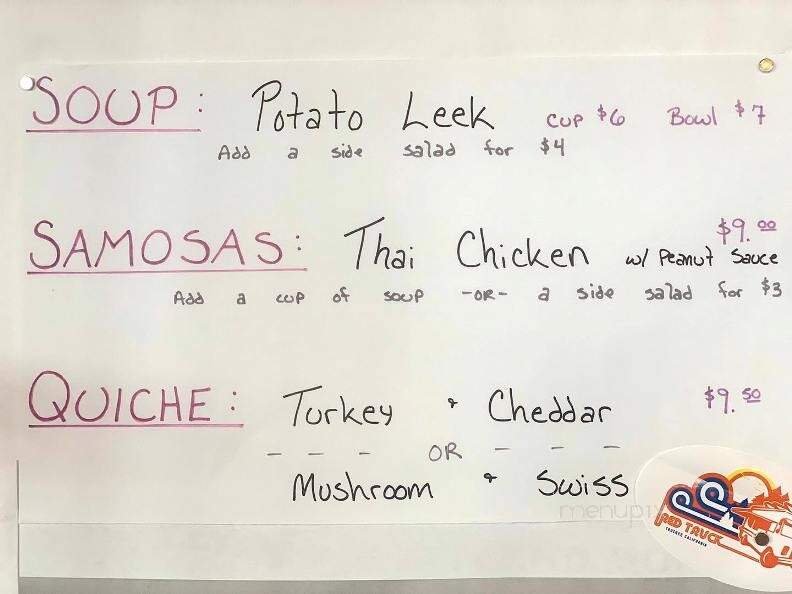 SOUP: Potato Leek CUP $6 Bowl $7
Add a side salad for $4
SAMOSAS: Thai Chicken w/ Peanut Sauce $9.00
Add a cup of soup -OR- a side salad for $3
QUICHE: Turkey & Cheddar $9.50
- - - OR - - -
Mushroom & Swiss
menupix
RED TRUCK
TRUCKEE CALIFORNIA